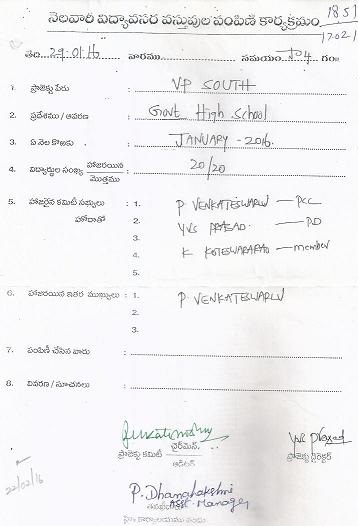 నెలవారీ విద్యావసర వస్తువుల పంపిణీ కార్యక్రమం
1851
17021
తేది: 29.01.16 వారము సమయం: సా 4 గం॥
1. ప్రాజెక్టు పేరు : VP SOUTH
2. ప్రదేశము / ఆవరణ : Govt High School
3. ఏ నెల కొఱకు : JANUARY - 2016.
4. విద్యార్థుల సంఖ్య హాజరయిన / మొత్తము : 20/20
5. హాజరైన కమిటీ సభ్యులు : 1. P VENKATESWARLU — PCC
హోదాతో 2. YVS PRASAD — PD
3.
4. K KOTESWARARAO — member
5.
6. హాజరయిన ఇతర ముఖ్యులు : 1. P. VENKATESWARLU
2.
3.
7. పంపిణీ చేసిన వారు :
8. వివరణ / సూచనలు :
ప్రాజెక్టు కమిటీ చైర్‌మెన్.
ఆడిటర్
ప్రాజెక్టు డైరెక్టర్
22/02/16
P. Dhanalakshmi
Asst. Manager